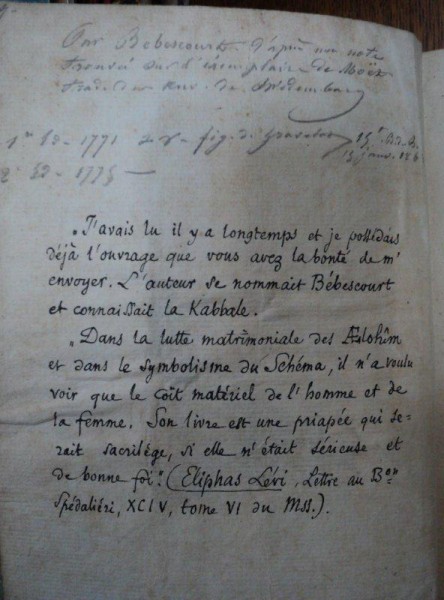 Par Bébescourt, d'après une note
trouvée sur l'exemplaire de Moët
trad. des Œuv. de Swedemborg
1771 2 v. fig. de Gravelot
1775 —
"J'avais lu il y a longtemps et je possédais
déjà l'ouvrage que vous avez la bonté de m'
envoyer. L'auteur se nommait Bébescourt
et connaissait la Kabbale.
"Dans la lutte matrimoniale des Ælohîm
et dans le symbolisme du Schéma, il n'a voulu
voir que le coït matériel de l'homme et de
la femme. Son livre est une priapée qui se-
rait sacrilége, si elle n'était sérieuse et
de bonne foi." (Eliphas Lévi, Lettre au Bon
Spédaliéri, XCIV, tome VI du Mss.).